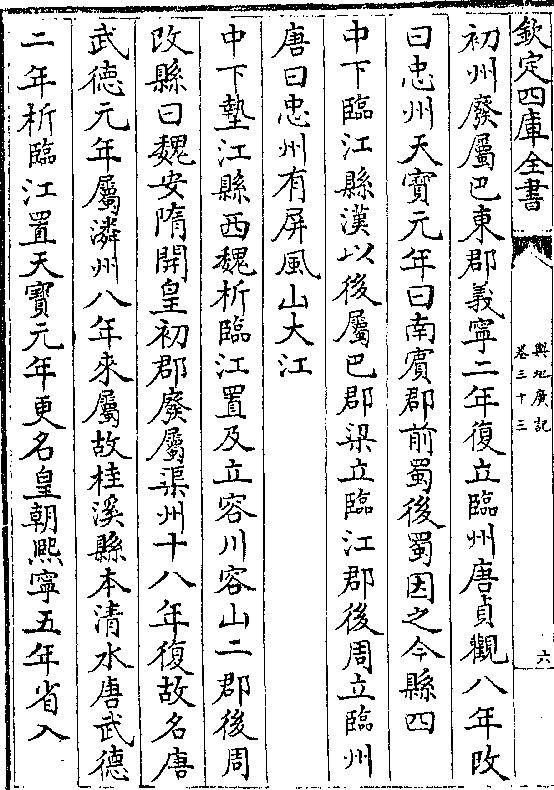 欽定四庫全書
輿地廣記
卷三十三
六
初州廢屬巴東郡義寧二年復立臨州唐貞觀八年改
曰忠州天寶元年曰南賓郡前蜀後蜀因之今縣四
中下臨江縣漢以後屬巴郡梁立臨江郡後周立臨州
唐曰忠州有屏風山大江
中下墊江縣西魏析臨江置及立容川容山二郡後周
改縣曰魏安隋開皇初郡廢屬渠州十八年復故名唐
武德元年屬潾州八年來屬故桂溪縣本清水唐武德
二年析臨江置天寶元年更名皇朝熈寧五年省入